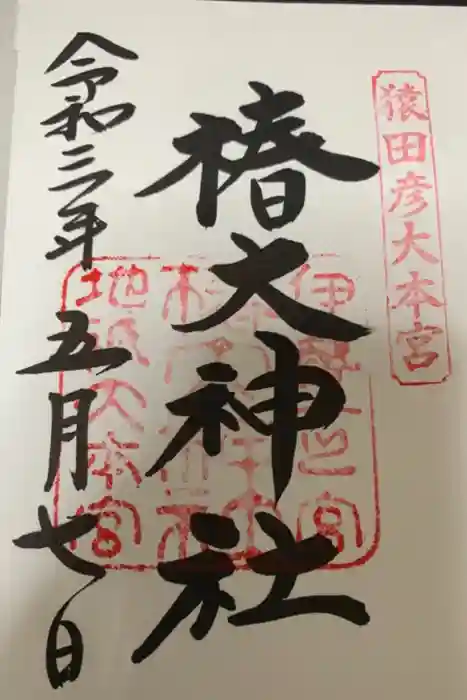 猿田彦大本宮
椿大神社
伊勢一之宮
地祇大本宮
令和三年五月七日